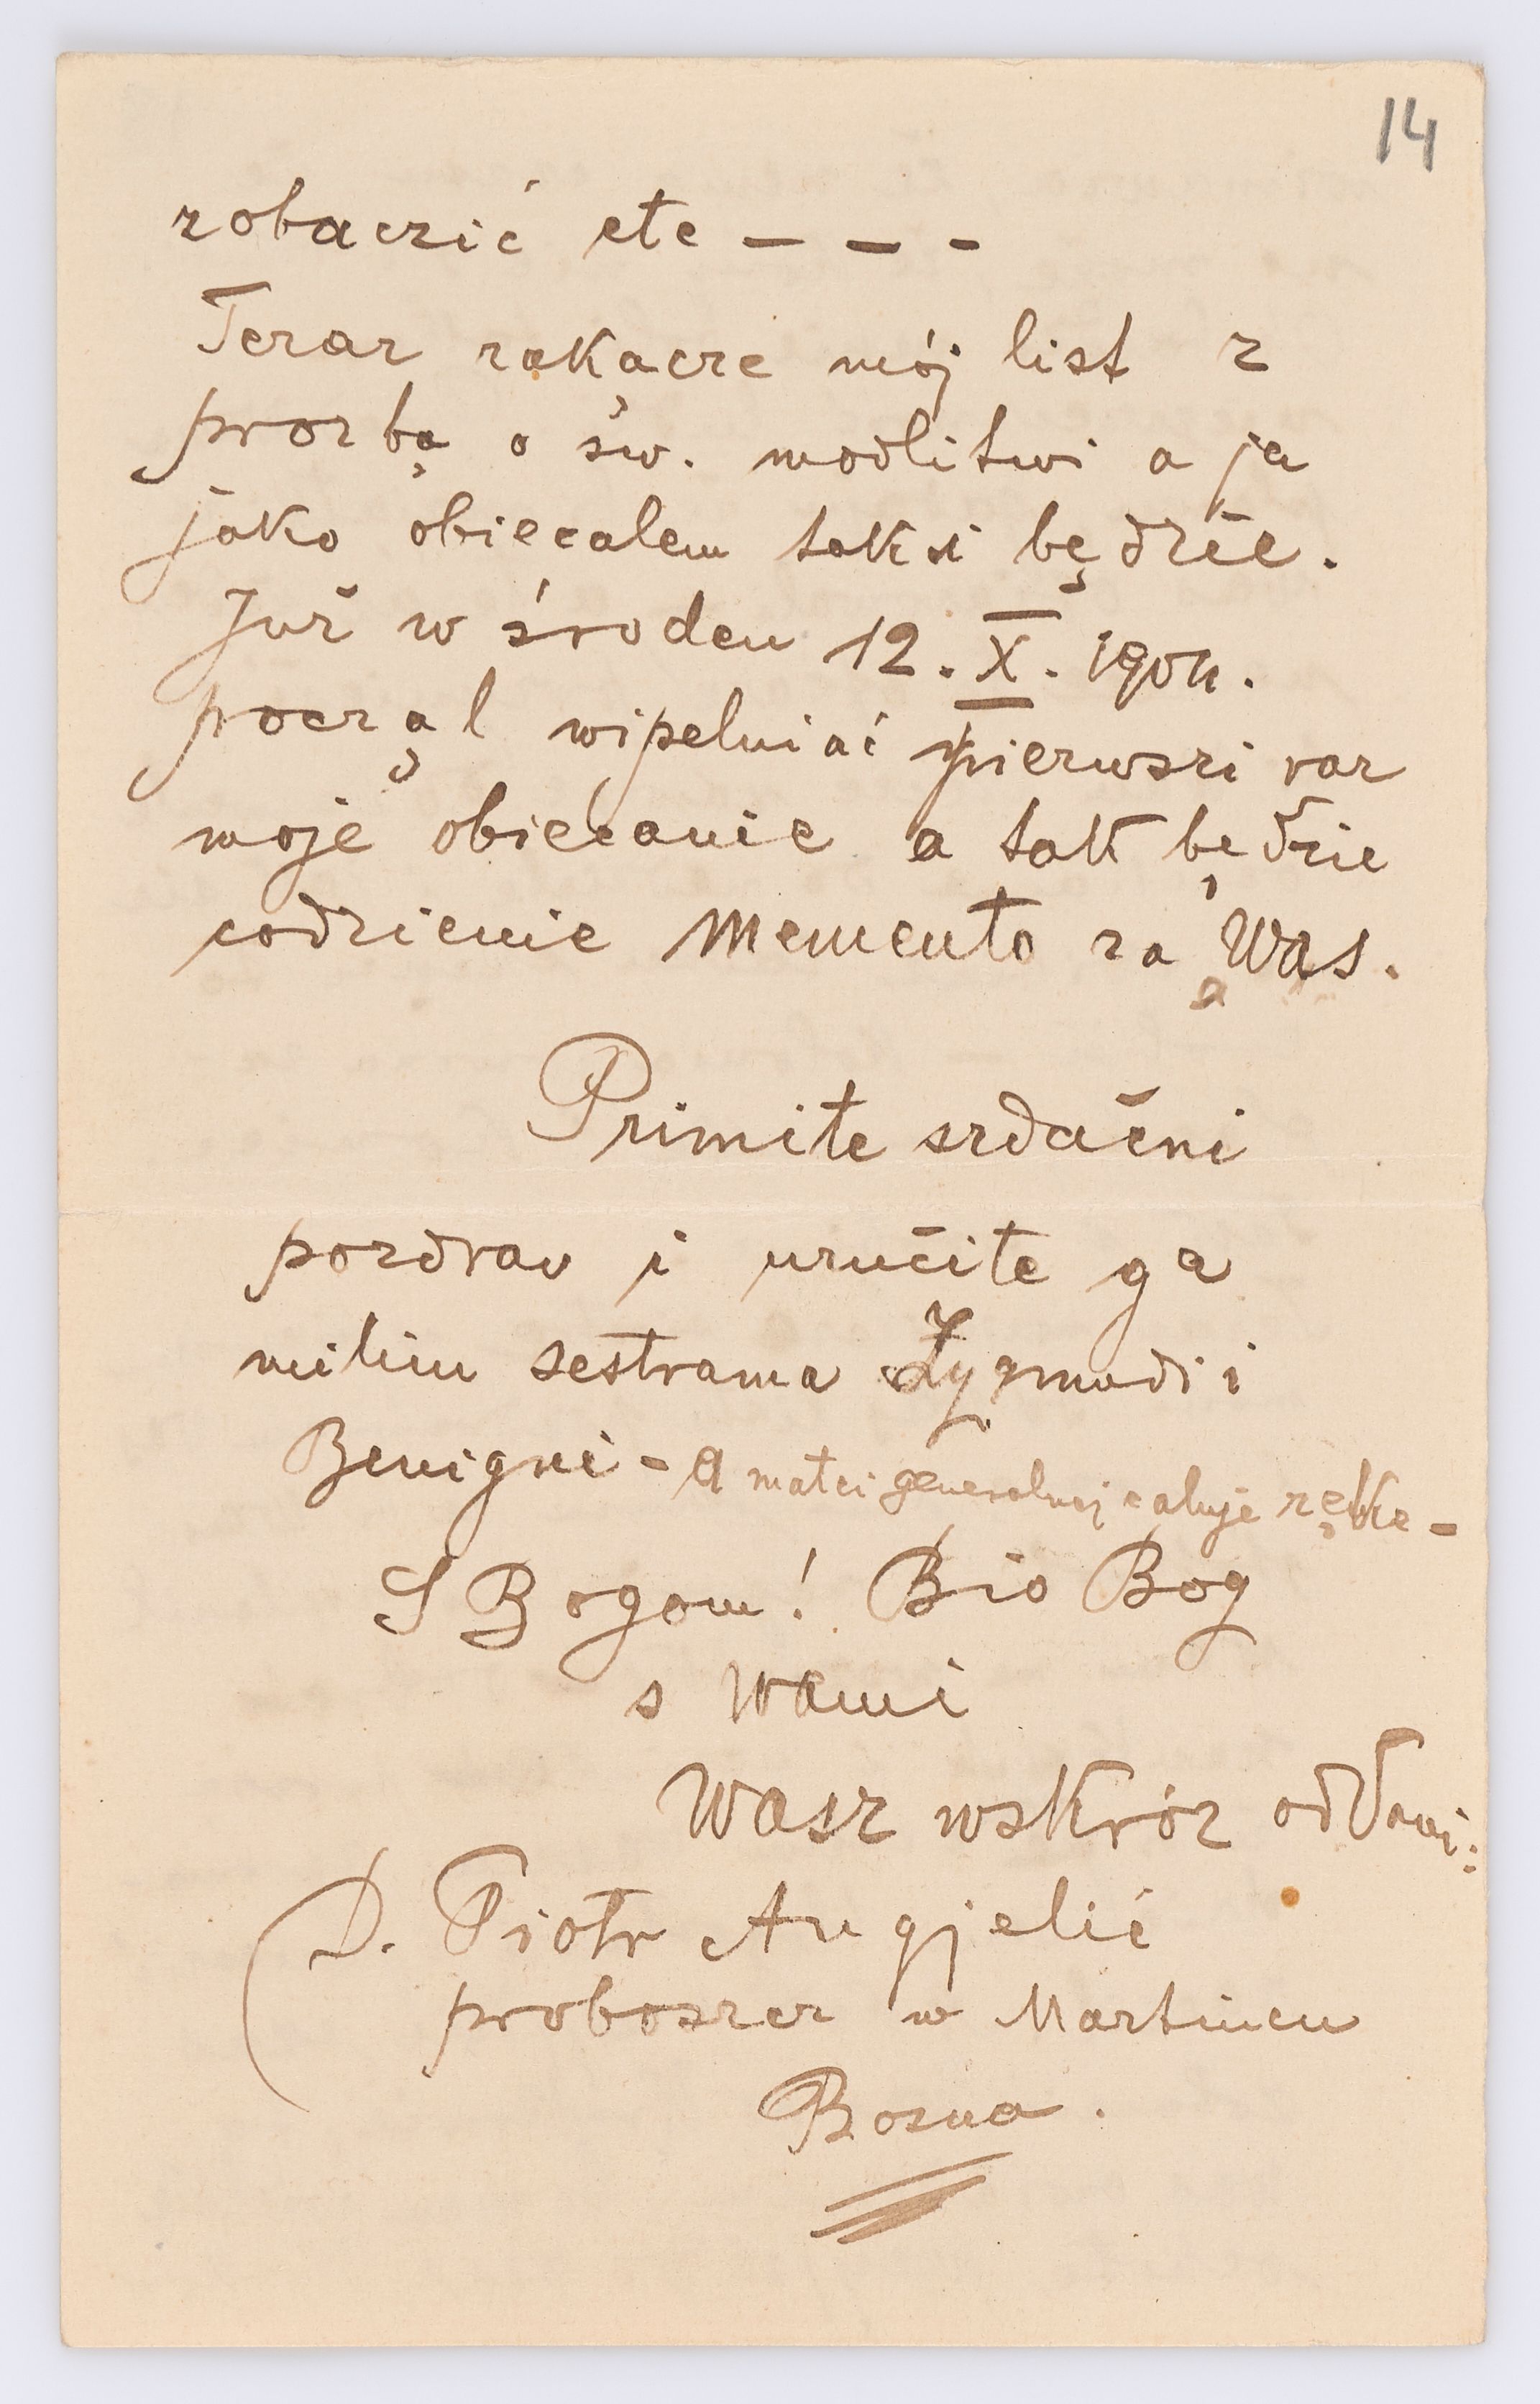 14
zobaczić etc - - -
Teraz zakącze mój list z
prozbą o św. modlitwi a ja
jako obiecalem tak i będźie.
Juž w środeu 12. X. 1904.
począl wipelniać pierwszi raz
moje obiecanie a tak będzie
codzienie Memento za Was.
Primite srdačni
pozdrav i uručite ga
milim sestrama Zygmudi i
Benigni - a matci generalnej caluje ręke -
S Bogom! Bio Bog
s Wami
Wasz wskróz oddani:
D. Piotr Angjelić
proboszcz w Martincu
Bosna.